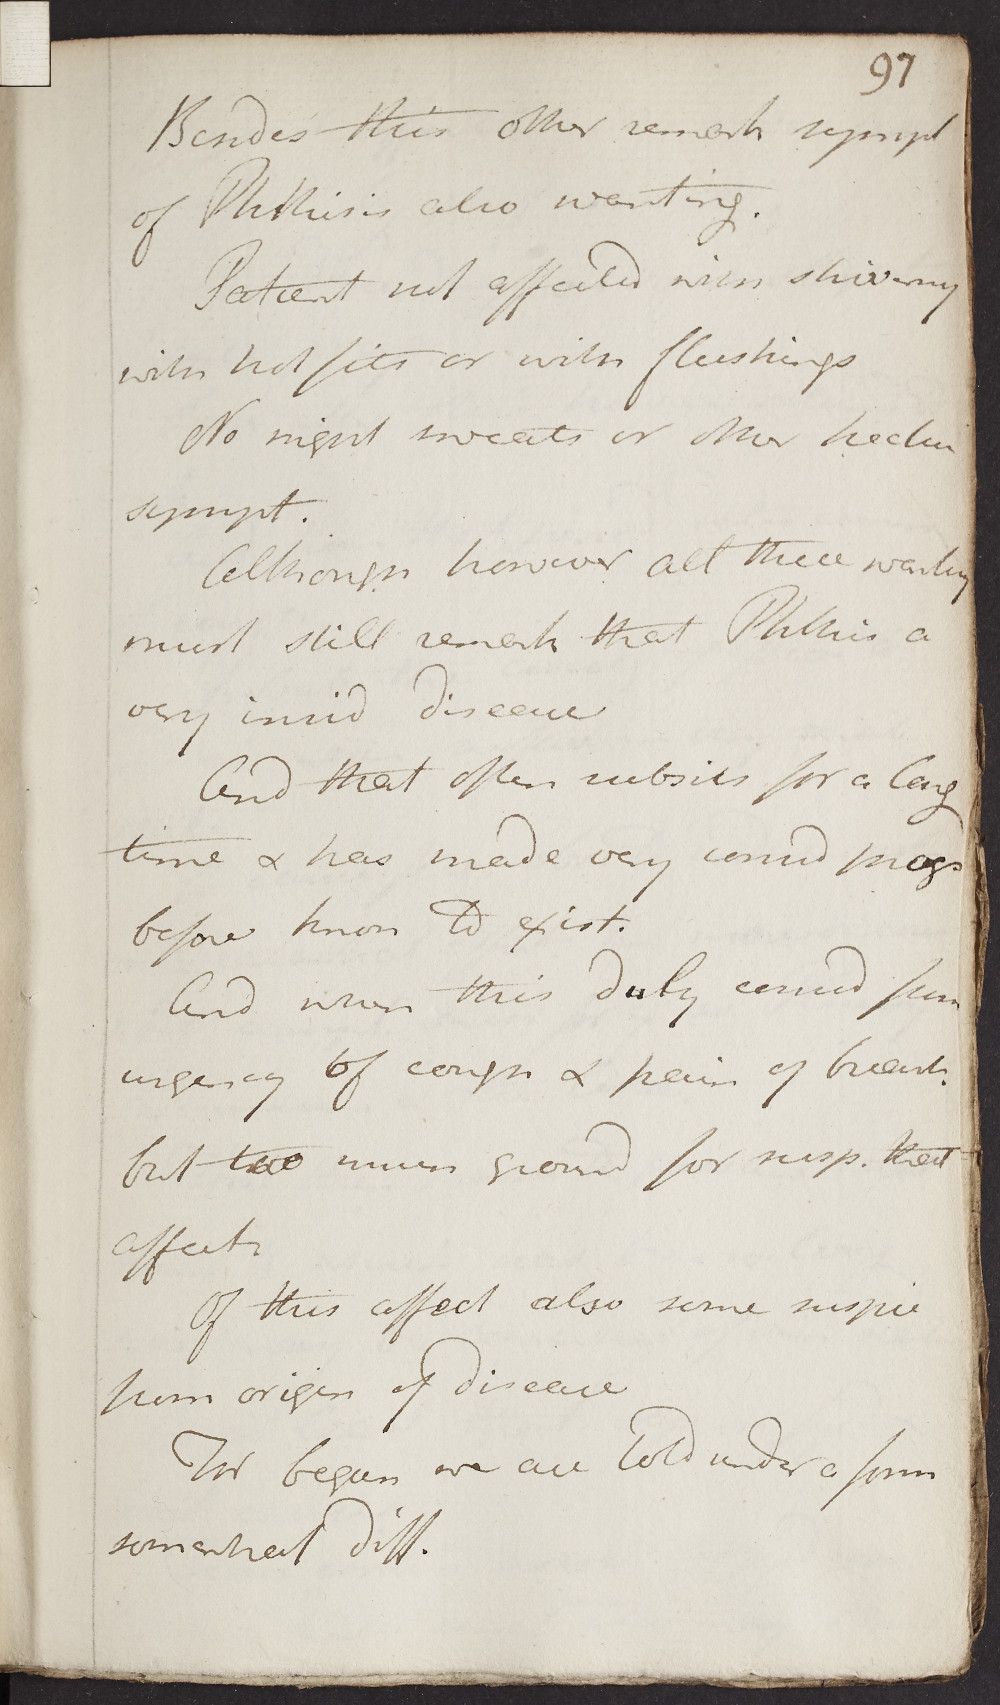 97
Besides this other remark sympt
of Phthisis also wanting.
Patient not affected with shivering
with hot fits or with flushings
No night sweats or other hectic
sympt.
Although however all these wanting
must still remark that Phthis a
very insid disease
And that often subsists for a long
time & has made very consid progs
before known to exist.
And when this duly consid from
urgency of cough & pain of breast.
but too much ground for susp. that
affect.
Of this affect also some suspic
from origin of disease
For began we are told under a form
somewhat diff.